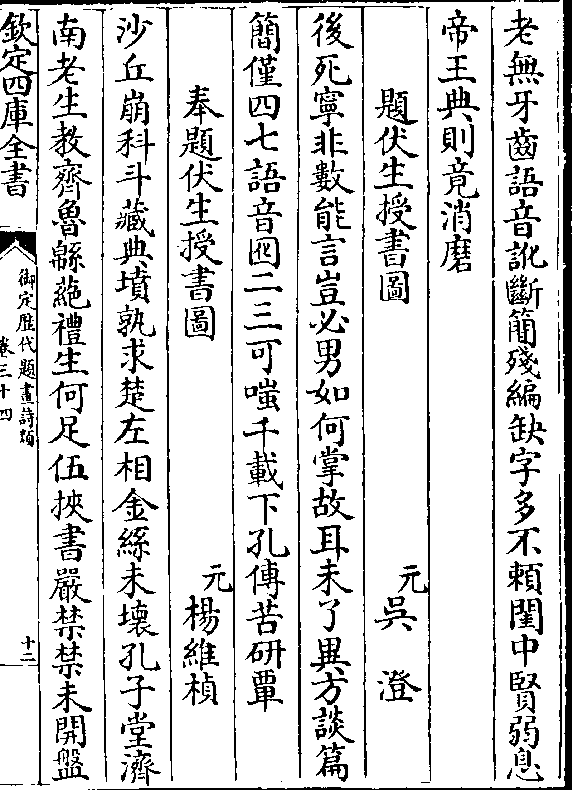 老無牙齒語音訛斷簡殘編缺字多不賴閨中賢弱息
帝王典則竟消磨
題伏生授書圖 元吳澄
後死寧非數能言豈必男如何掌故耳未了異方談篇
簡僅四七語音囮二三可嗤千載下孔傳苦研覃
奉題伏生授書圖 元楊維楨
沙丘崩科斗藏典墳孰求楚左相金絲未壞孔子堂濟
南老生教齊魯緜蕝禮生何足伍挾書嚴禁禁未開盤
欽定四庫全書
御定歴代題畫詩類
卷三十四
十二